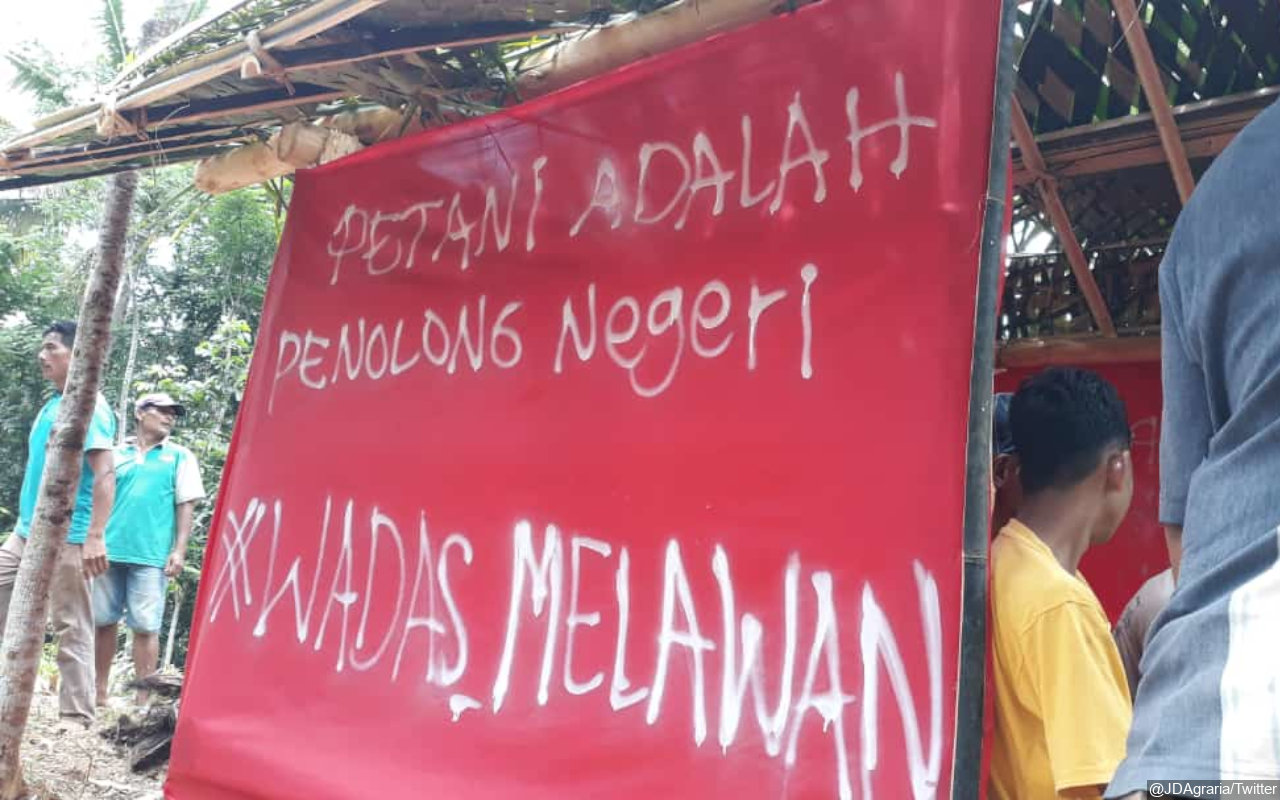 PETANI ADALAH
PENOLONG Negeri
#WADAS MELAWAN
@JDAgraria/Twitter